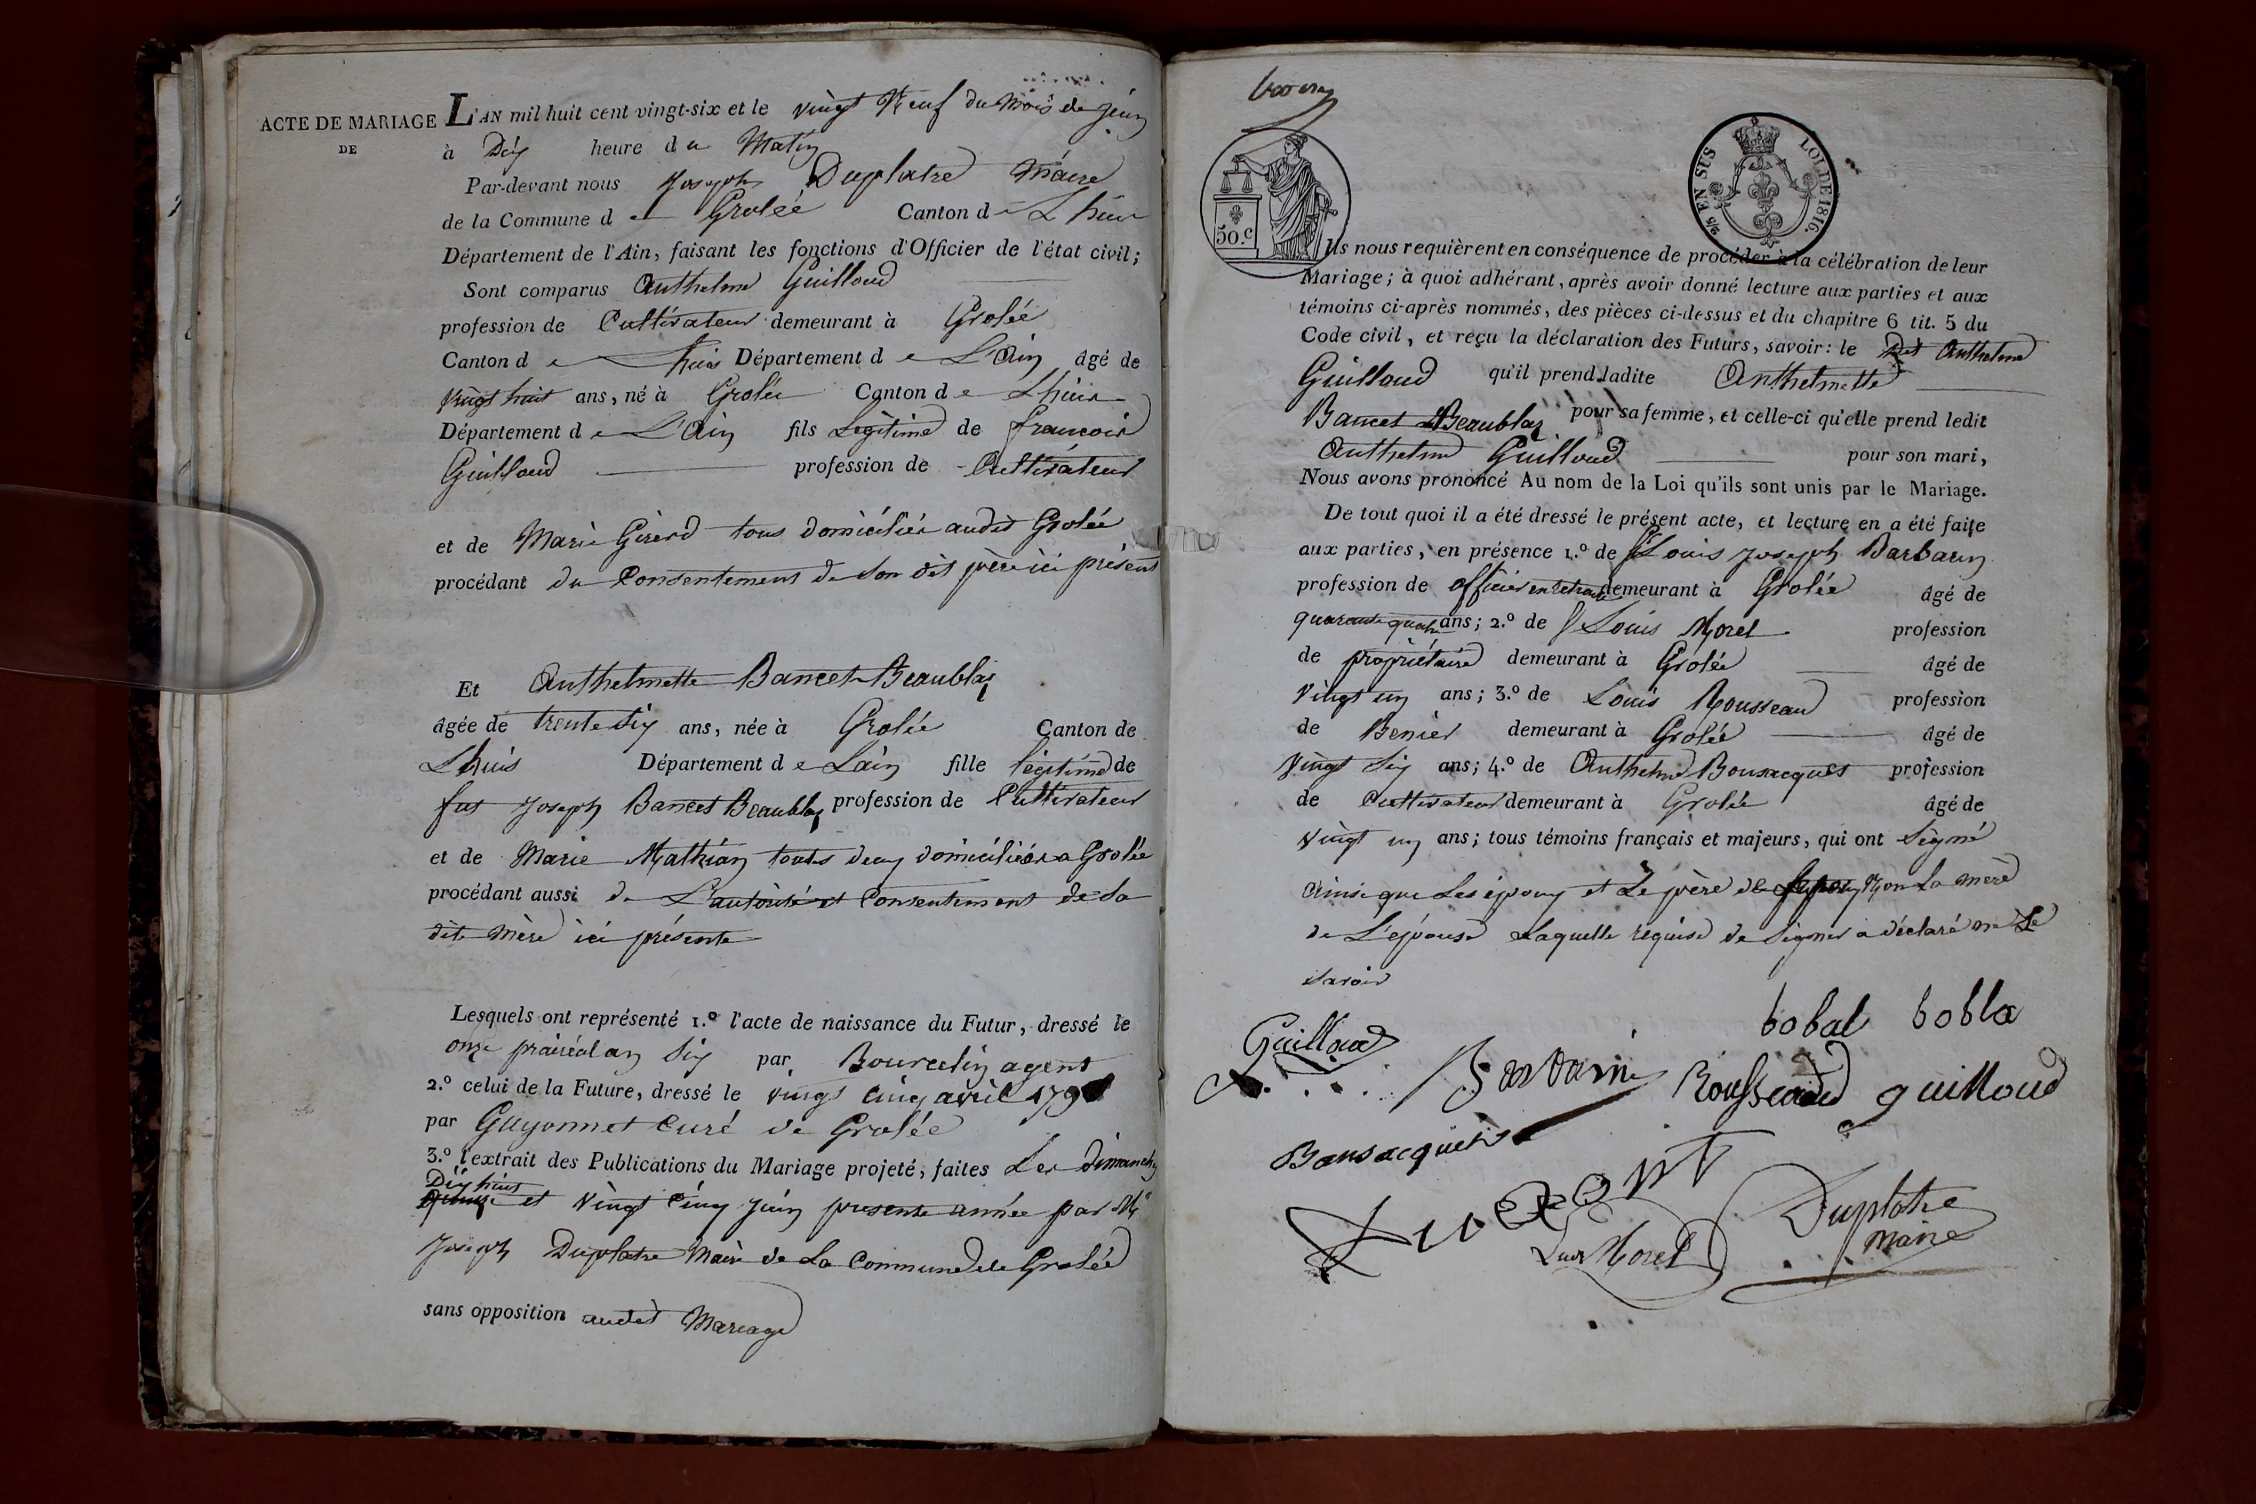 ACTE DE MARIAGE
DE
L'AN mil huit cent vingt-six et le vingt Neuf du Mois de juin
à Dix heure du Matin
Par-devant nous Joseph Duplatre Maire
de la Commune de Grolée Canton de Lhuis
Département de l'Ain, faisant les fonctions d'Officier de l'état civil;
Sont comparus Anthelme Guilloud
profession de Cultivateur demeurant à Grolée
Canton de Lhuis Département de L'Ain âgé de
vingt huit ans, né à Grolée Canton de Lhuis
Département de L'Ain fils Légitime de francois
Guilloud profession de Cultivateur
et de Marie Girerd tous domiciliés audit Grolée
procédant du Consentement de son dit père ici présent
Et Anthelmette Bancet Beaublas
âgée de trente Six ans, née à Grolée Canton de
Lhuis Département de Lain fille légitime de
fut Joseph Bancet Beaublas profession de Cultivateur
et de Marie Mathian touts deux domiciliés a Grolée
procédant aussi de L'autorité et Consentement de Sa
dite Mère ici présente
Lesquels ont représenté 1.º l'acte de naissance du Futur, dressé le
onze prairéal an Six par Bourcelin agent
2.º celui de la Future, dressé le vingt cinq avril
par Guyonnet Curé de Grolée
3.º l'extrait des Publications du Mariage projeté, faites Les Dimanches
Dix huit
et Vingt Cinq Juin presente année par Mr
Joseph Duplatre Maire de La Commune de Grolée
sans opposition audit Mariage
50.c
2/5 EN SUS LOI DE 1816.
Ils nous requièrent en conséquence de procéder à la célébration de leur
Mariage; à quoi adhérant, après avoir donné lecture aux parties et aux
témoins ci-après nommés, des pièces ci-dessus et du chapitre 6 tit. 5 du
Code civil, et reçu la déclaration des Futurs, savoir: le Dit Anthelme
Guilloud qu'il prend ladite Anthelmette
Bancet Beaublas pour sa femme, et celle-ci qu'elle prend ledit
Anthelme Guilloud pour son mari,
Nous avons prononcé Au nom de la Loi qu'ils sont unis par le Mariage.
De tout quoi il a été dressé le présent acte, et lecture en a été faite
aux parties, en présence 1.º de Sr Louis Joseph Barbarin
profession de officier en retraite demeurant à Grolée âgé de
quarante quatre ans; 2.º de Sr Louis Morel profession
de propriétaire demeurant à Grolée âgé de
Vingt un ans; 3.º de Louis Rousseau profession
de demeurant à Grolée âgé de
Vingt Six ans; 4.º de Anthelme Bonsacques profession
de Cultivateur demeurant à Grolée âgé de
vingt un ans; tous témoins français et majeurs, qui ont Signé
ainsi que Les époux et Le père de Non La mère
de L'épouse Laquelle requise de Signer a déclaré ne Le
savoir
bobal bobla
Guilloud Barbarin Rousseaud guilloud
Bonsacques
Louis Morel
Duplatre
Maire